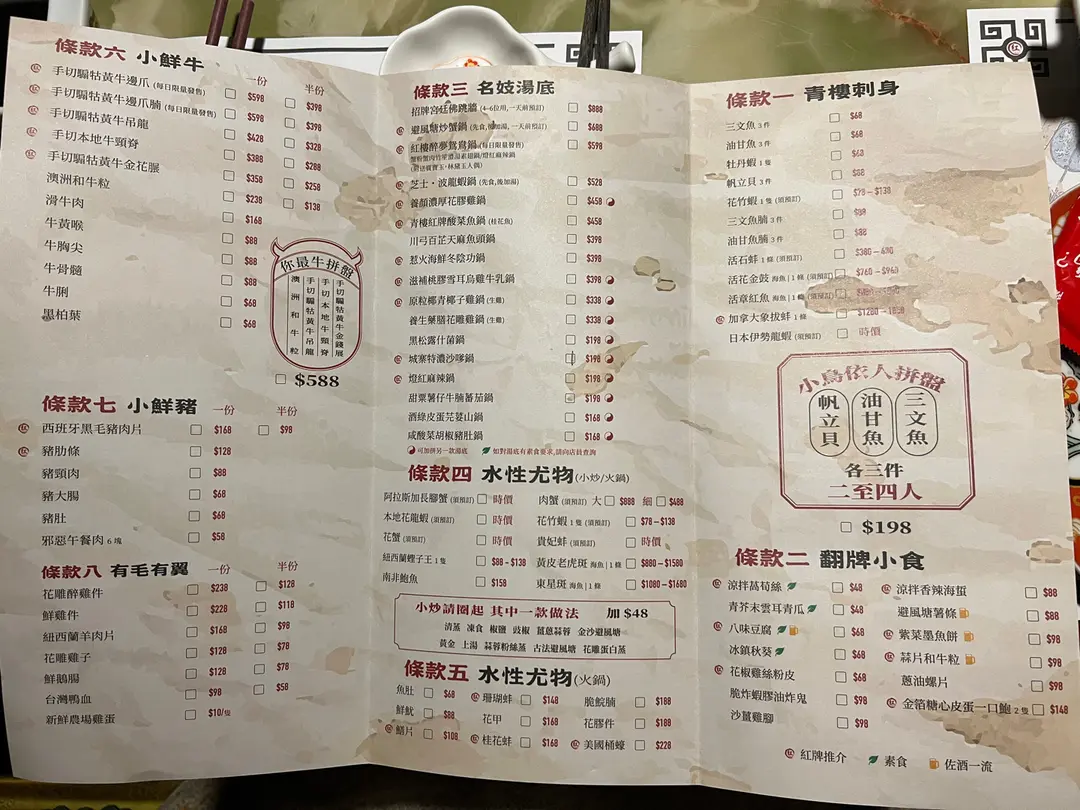 條款六 小鮮牛
一份 半份
手切騸牯黃牛邊爪 (每日限量發售) $598 $398
手切騸牯黃牛邊爪腩 (每日限量發售) $598 $398
手切騸牯黃牛吊龍 $428 $328
手切本地牛頸脊 $388 $288
手切騸牯黃牛金花𦟌 $358 $258
澳洲和牛粒 $238 $138
滑牛肉 $168
牛黃喉 $88
牛胸尖 $88
牛骨髓 $88
牛脷 $68
黑柏葉 $68
你最牛拼盤
手切騸牯黃牛金錢展
手切本地牛頸脊
手切騸牯黃牛吊龍
澳洲和牛粒
$588
條款七 小鮮豬 一份 半份
西班牙黑毛豬肉片 $168 $98
豬肋條 $128
豬頸肉 $88
豬大腸 $68
豬肚 $68
邪惡午餐肉 6塊 $58
條款八 有毛有翼 一份 半份
花雕醉雞件 $238 $128
鮮雞件 $228 $118
紐西蘭羊肉片 $168 $98
花雕雞子 $128 $78
鮮鵝腸 $128 $78
台灣鴨血 $98 $58
新鮮農場雞蛋 $10/隻
條款三 名妓湯底
招牌宮廷佛跳牆 (4-6位用,一天前預訂) $888
避風塘炒蟹鍋 (先食,後加湯,一天前預訂) $688
紅樓醉夢鴛鴦鍋 (每日限量發售) $598
芝士・波龍蝦鍋 (先食,後加湯) $528
養顏濃厚花膠雞鍋 $458
青樓紅牌酸菜魚鍋 (桂花魚) $458
川弓百芷天麻魚頭鍋 $398
惹火海鮮冬陰功鍋 $398
滋補桃膠雪耳烏雞牛乳鍋 $398
原粒椰青椰子雞鍋 (生雞) $338
養生藥膳花雕雞鍋 (生雞) $338
黑松露什菌鍋 $198
城寨特濃沙嗲鍋 $198
燈紅麻辣鍋 $198
甜粟薯仔牛腩蕃茄鍋 $198
酒綠皮蛋芫荽山鍋 $168
咸酸菜胡椒豬肚鍋 $168
可加拼另一款湯底 如對湯底有素食要求,請向店員查詢
條款四 水性尤物(小炒/火鍋)
阿拉斯加長腳蟹 (須預訂) 時價 肉蟹 (須預訂) 大 $888 細 $488
本地花龍蝦 (須預訂) 時價 花竹蝦 1隻 (須預訂) $78-$138
花蟹 (須預訂) 時價 貴妃蚌 (須預訂) 時價
紐西蘭鯉子王 1隻 $88-$138 黃皮老虎斑 海魚|1條 $880-$1580
南非鮑魚 $158 東星斑 海魚|1條 $1080-$1680
小炒請圈起 其中一款做法 加 $48
清蒸 凍食 椒鹽 豉椒 薑蔥蒜蓉 金沙避風塘
黃金 上湯 蒜蓉粉絲蒸 古法避風塘 花雕蛋白蒸
條款五 水性尤物(火鍋)
魚肚 $68 珊瑚蚌 $148 脆鯇腩 $188
鮮魷 $88 花甲 $168 花膠件 $188
鱔片 $108 桂花蚌 $168 美國桶蠔 $228
條款一 青樓刺身
三文魚 3件 $68
油甘魚 3件 $68
牡丹蝦 1隻 $68
帆立貝 3件 $68
花竹蝦 1隻 (須預訂) $78-$138
三文魚腩 3件 $88
油甘魚腩 3件 $88
活石蚌 1條 (須預訂) $380-$680
活花金鼓 海魚|1條 (須預訂) $760-$960
活章紅魚 海魚|1條 (須預訂)
加拿大象拔蚌 1條
日本伊勢龍蝦 (須預訂) 時價
小鳥依人拼盤
三文魚
油甘魚
帆立貝
各三件
二至四人
$198
條款二 翻牌小食
涼拌萵荀絲 $48 涼拌香辣海蜇 $88
青芥末雲耳青瓜 $48 避風塘薯條 $88
八味豆腐 $68 紫菜墨魚餅 $98
冰鎮秋葵 $68 蒜片和牛粒 $98
花椒雞絲粉皮 $68 蔥油螺片 $98
脆炸蝦膠油炸鬼 $98 金箔糖心皮蛋一口鮑 2隻 $148
沙薑雞腳 $98
紅牌推介 素食 佐酒一流